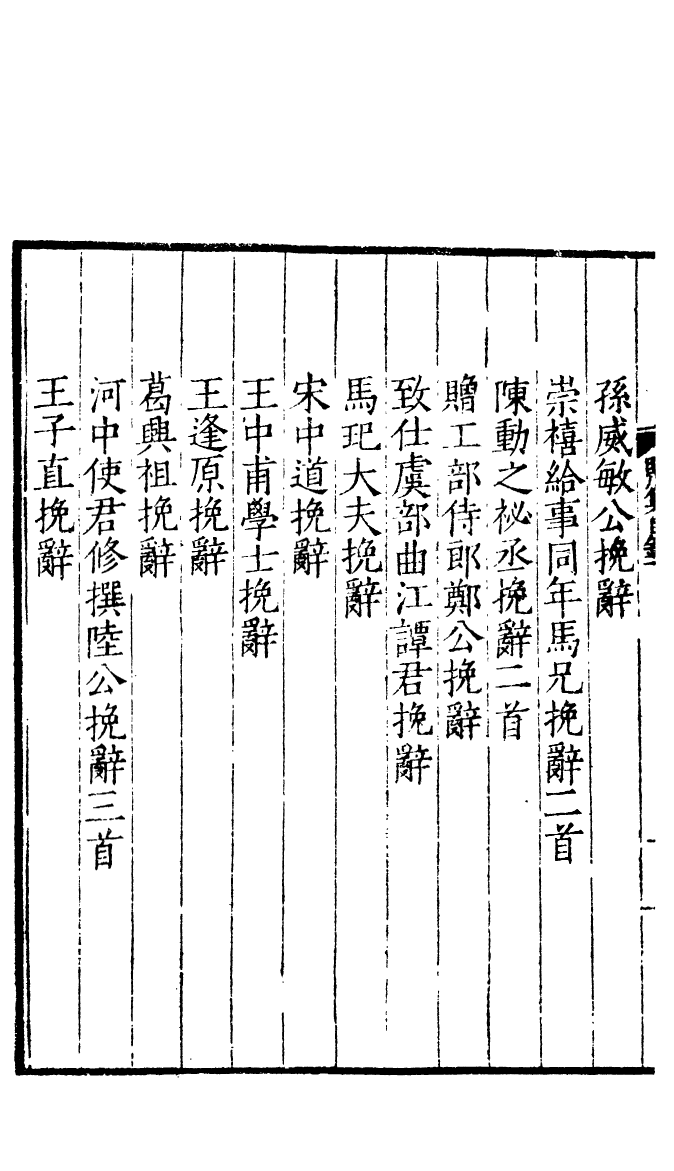 孫威敏公挽辭
崇禧給事同年馬兄挽辭二首
陳動之祕丞挽辭二首
贈工部侍郎鄭公挽辭
致仕虞部曲江譚君挽辭
馬玘大夫挽辭
宋中道挽辭
王中甫學士挽辭
王逢原挽辭
葛興祖挽辭
河中使君修撰陸公挽辭三首
王子直挽辭